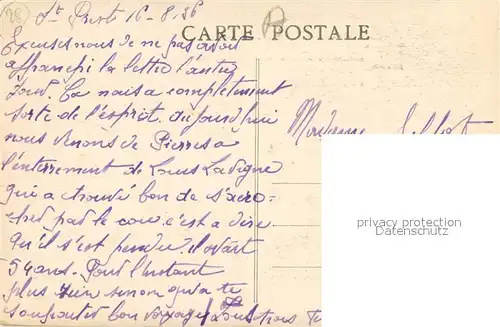 28
St Prest 16-8-36
CARTE POSTALE
Excusez nous de ne pas avoir
affranchi la lettre l'autre
jour. Ca nous a completement
sorte de l'esprit. aujourd'hui
nous venons de Pierres a
l'enterrement de Louis Lavigne
qui a trouvé bon de s'acro-
cher par le cou c'est a dire
qu'il s'est pendu il avait
54 ans. Pour l'instant
plus rien sinon qu'a te
souhaiter bon voyage. Tous trois
Madame
privacy protection
Datenschutz